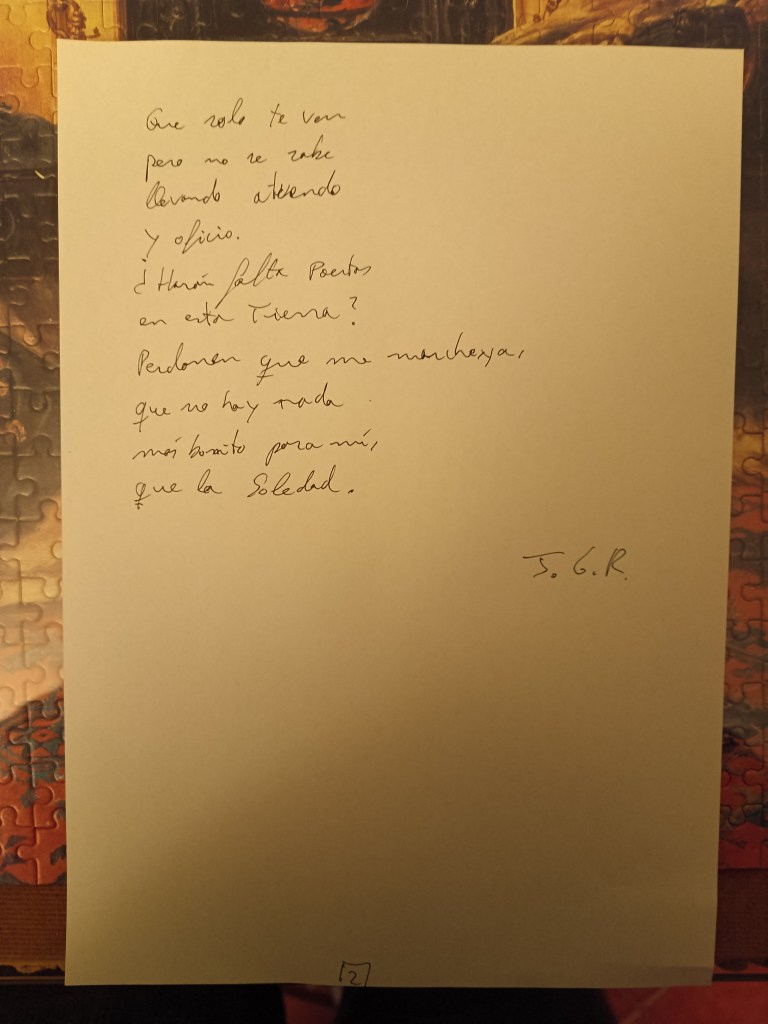 Que solo te ven
pero no se sabe
llevando atuendo
y oficio.
¿Harán falta Poetas
en esta Tierra?
Perdonen que me marche ya,
que no hay nada
más bonito para mí,
que la Soledad.
J. G. R.
2